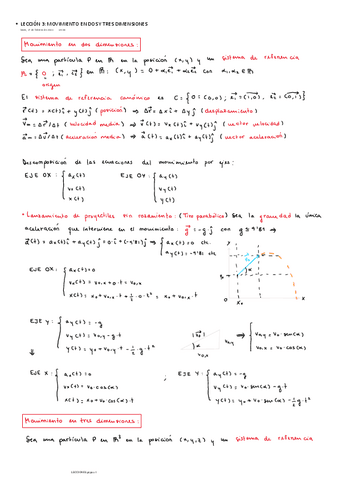 • LECCIÓN 3: MOVIMIENTO EN DOS Y TRES DIMENSIONES
Movimiento en dos dimensiones:
Sea una partícula P en ℝ² en la posición (x,y) y un sistema de referencia
R = {0 ; e₁, e₂} en ℝ²: (x,y) = 0 + α₁e₁ + α₂e₂ con α₁, α₂ ∈ ℝ
origen
El sistema de referencia canónico es C = {0 = (0,0); e₁ = (1,0), e₂ = (0,1)}
r(t) = x(t)i + y(t)j (posición) ⇒ Δr = Δx i + Δy j (desplazamiento)
Vm = Δr/Δt (velocidad media) ⇒ v(t) = vx(t)i + vy(t)j (vector velocidad)
am = Δv/Δt (aceleración media) ⇒ a(t) = ax(t)i + ay(t)j (vector aceleración)
Descomposición de las ecuaciones del movimiento por ejes:
EJE OX: { ax(t) EJE OY: { ay(t)
vx(t) vy(t)
x(t) y(t)
• Lanzamiento de proyectiles sin rozamiento: (Tiro parabólico) Sea la gravedad la única
aceleración que interviene en el movimiento: g = -g j con g = 9'81 ⇒
a(t) = ax(t)i + ay(t)j = 0·i + (-9'81)j ⇒ { ax(t) = 0 cte.
ay(t) = -9'81 cte
EJE OX: { ax(t) = 0
vx(t) = v0,x + 0·t = v0,x
x(t) = x0 + v0,x·t + 1/2·0·t² = x0 + v0,x·t
EJE Y: { ay(t) = -g
vy(t) = v0,y - g·t
y(t) = y0 + v0,y·t - 1/2 g·t²
|v0| v0,y
α
v0,x
{ v0,y = v0·sen(α)
v0,x = v0·cos(α)
⇓
EJE X: { ax(t) = 0 ; EJE Y: { ay(t) = -g
vx(t) = v0·cos(α) vy(t) = v0·sen(α) - g·t
x(t) = x0 + v0·cos(α)·t y(t) = y0 + v0·sen(α)·t - 1/2 g·t²
Movimiento en tres dimensiones:
Sea una partícula P en ℝ³ en la posición (x,y,z) y un sistema de referencia